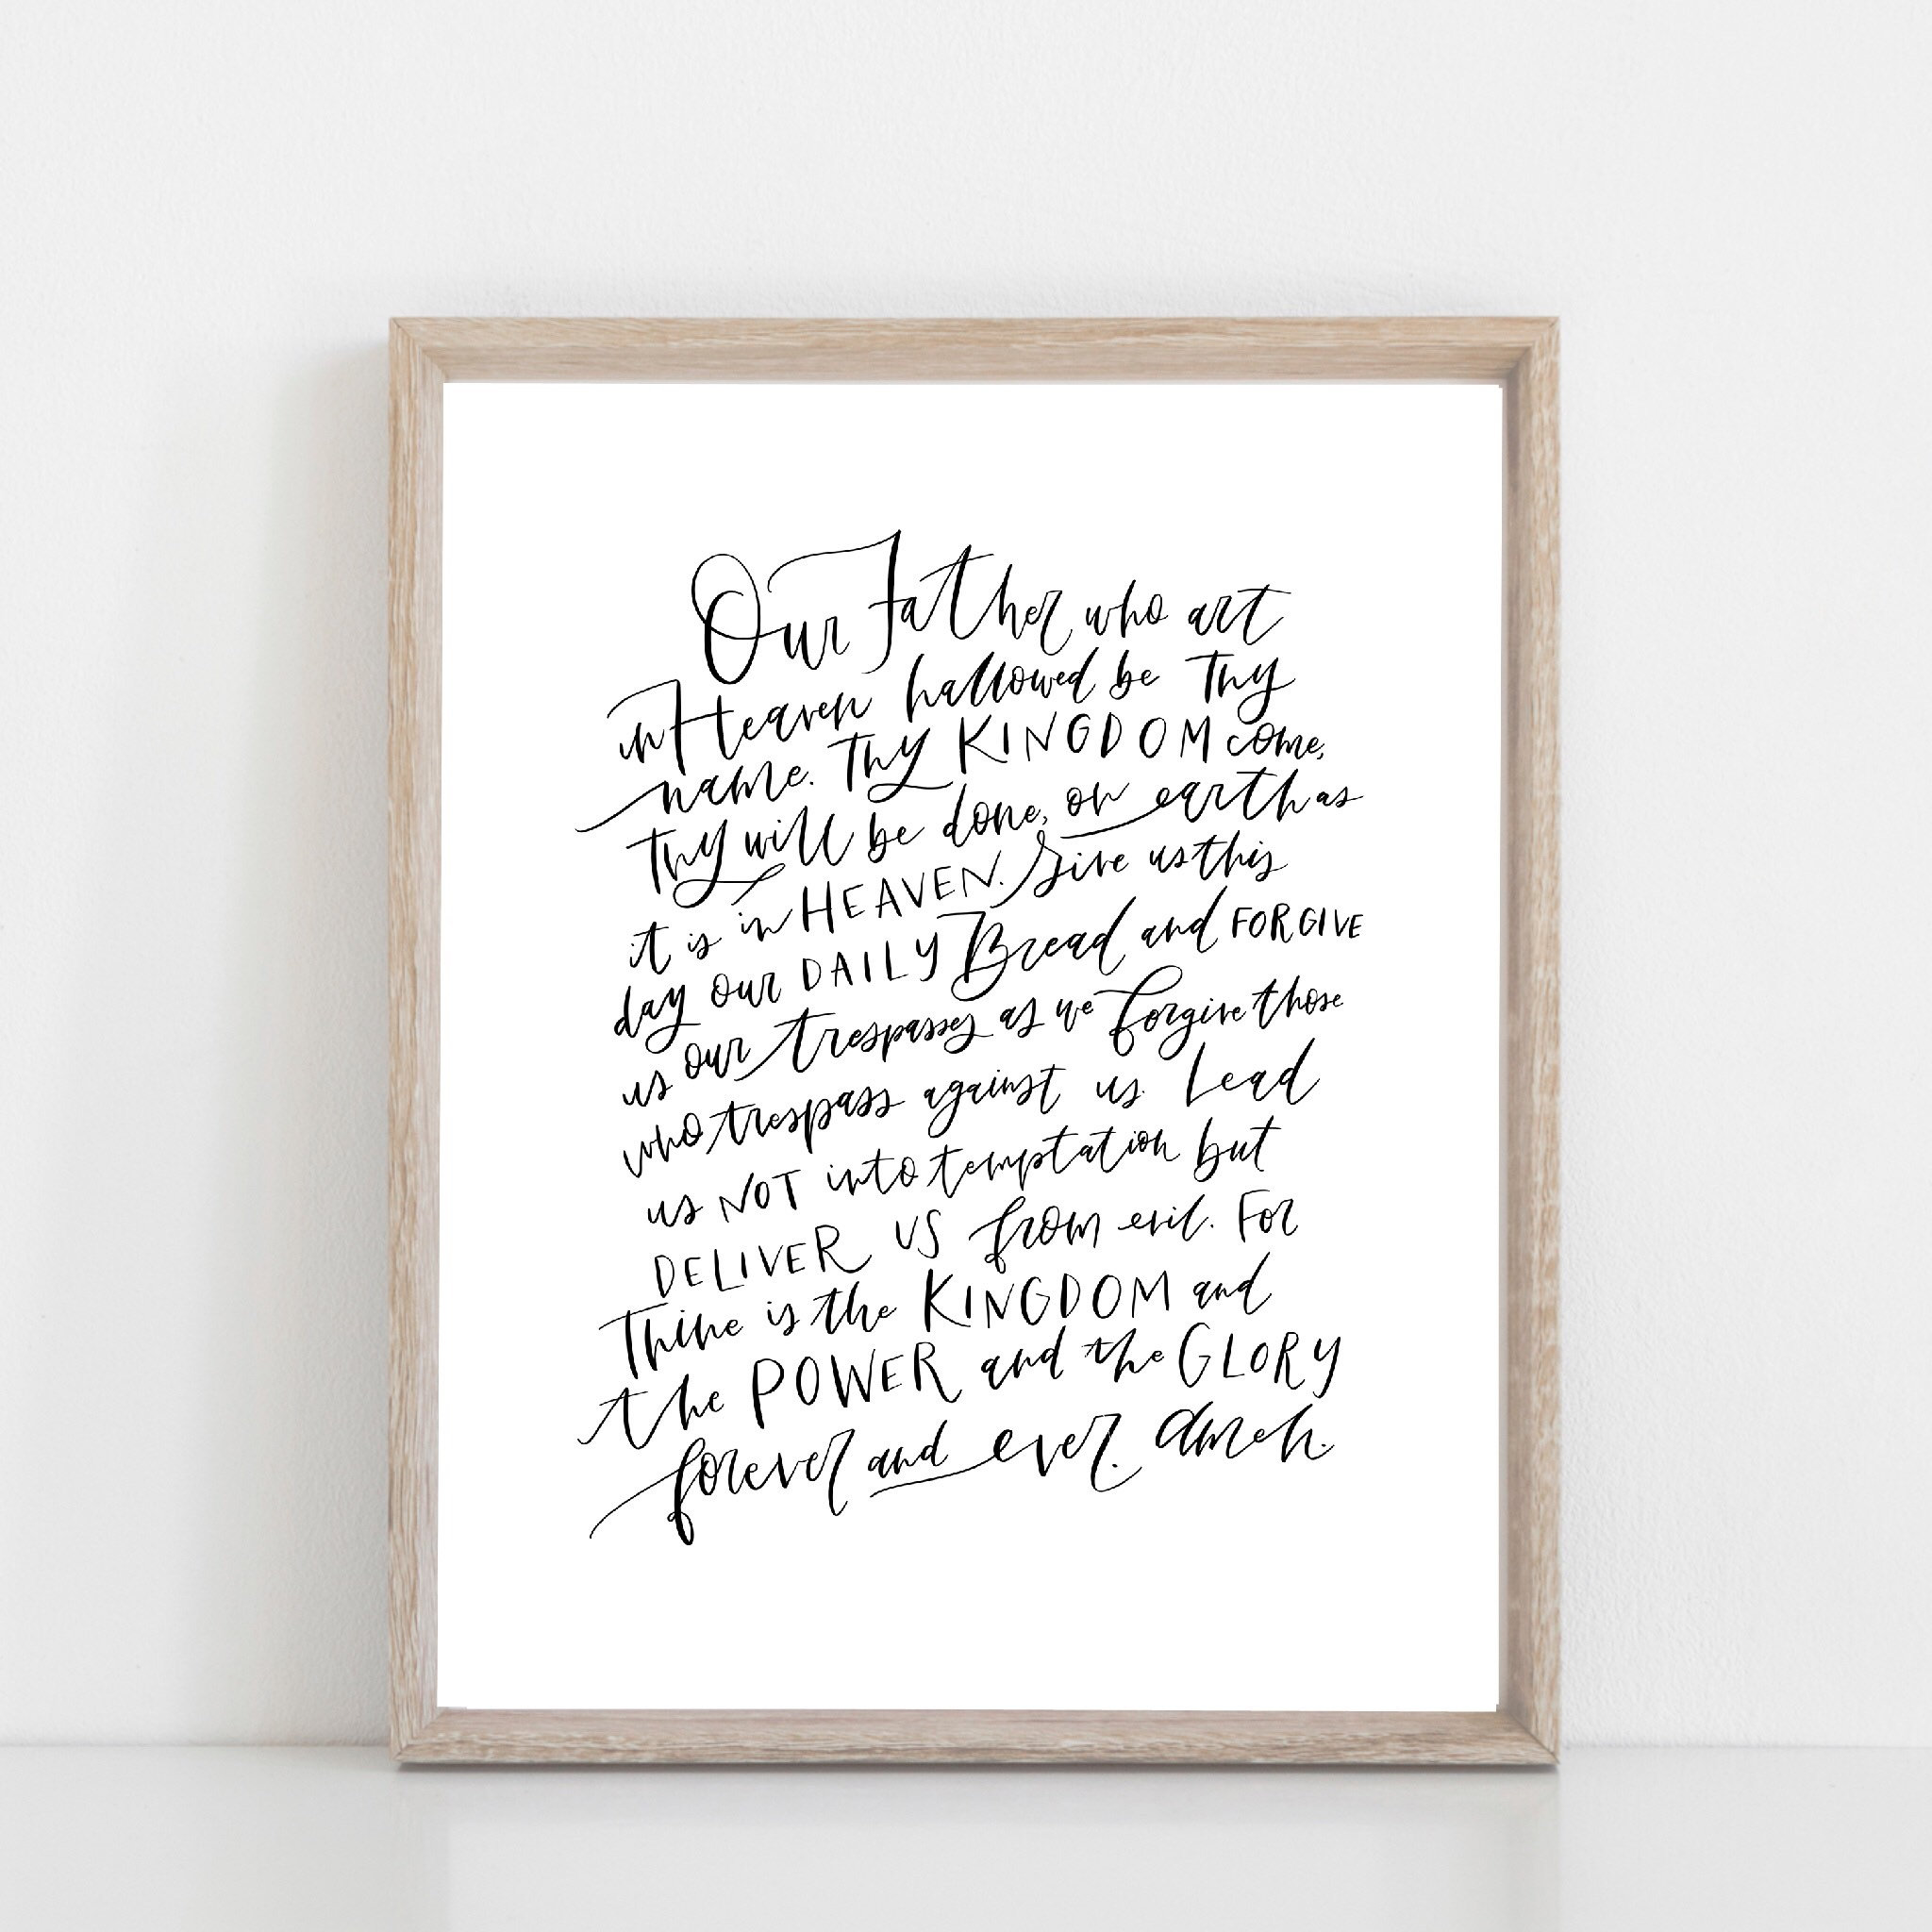 Our Father who art
in Heaven hallowed be Thy
name. Thy KINGDOM come,
Thy will be done, on earth as
it is in HEAVEN. Give us this
day our DAILY Bread and FORGIVE
us our trespasses as we forgive those
who trespass against us. Lead
us NOT into temptation but
DELIVER US from evil. For
Thine is the KINGDOM and
the POWER and the GLORY
forever and ever. Amen.